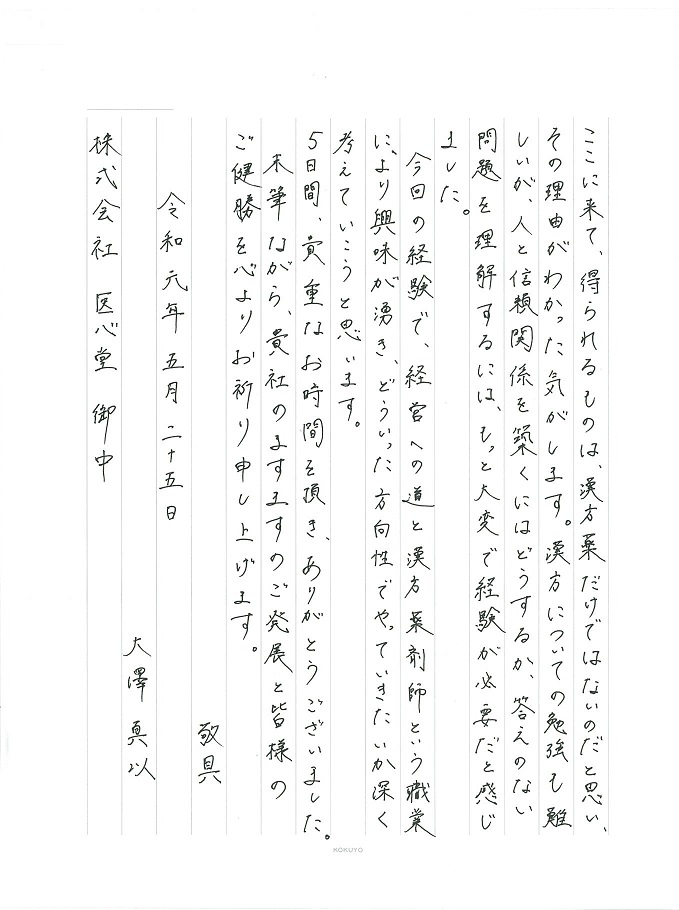 ここに来て、得られるものは、漢方薬だけではないのだと思い、
その理由がわかった気がします。漢方についての勉強も難
しいが、人と信頼関係を築くにはどうするか、答えのない
問題を理解するには、もっと大変で経験が必要だと感じ
ました。
今回の経験で、経営への道と漢方薬剤師という職業
に、より興味が湧き、どういった方向性でやっていきたいか深く
考えていこうと思います。
5日間、貴重なお時間を頂き、ありがとうございました。
末筆ながら、貴社のますますのご発展と皆様の
ご健勝を心よりお祈り申し上げます。
敬具
令和元年 五月二十五日
大澤真以
株式会社 医心堂 御中
KOKUYO